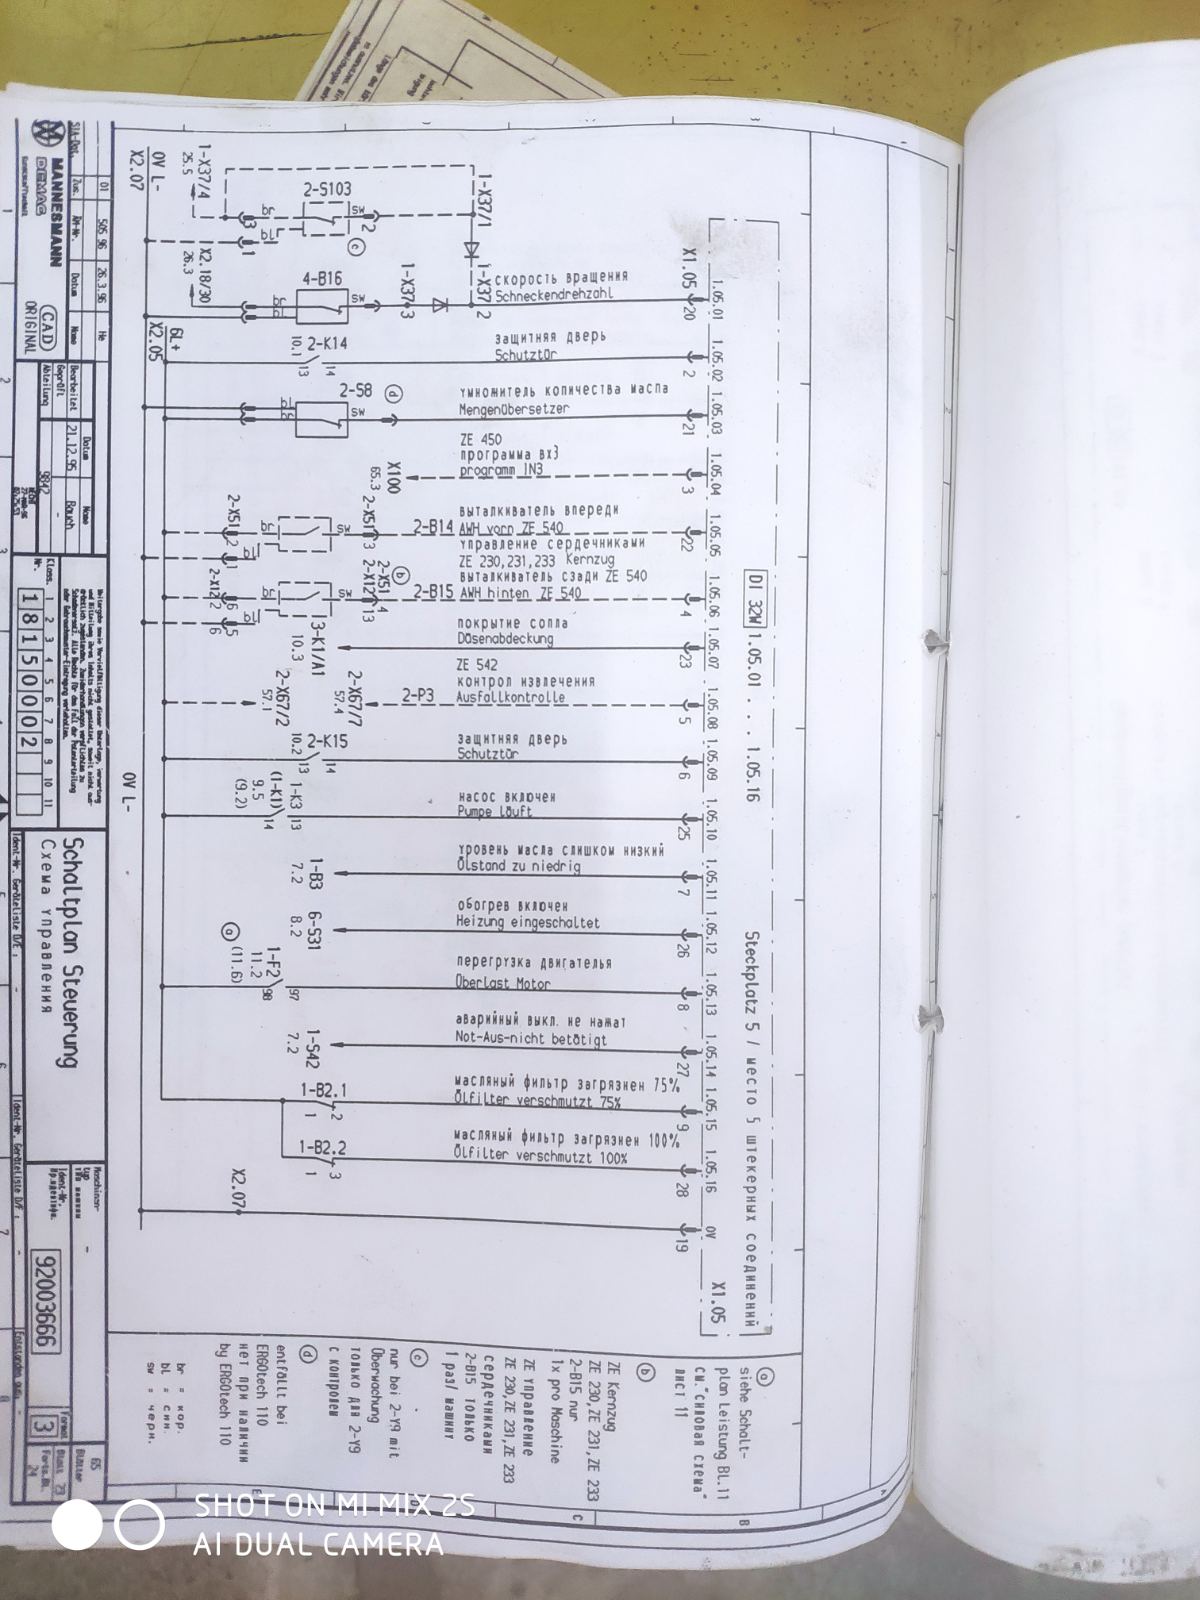 DI 32W 1.05.01 . . . 1.05.16
Steckplatz 5 / место 5 штекерных соединений
X1.05
1.05.01
1.05.02
1.05.03
1.05.04
1.05.05
1.05.06
1.05.07
1.05.08
1.05.09
1.05.10
1.05.11
1.05.12
1.05.13
1.05.14
1.05.15
1.05.16
0V
X1.05
20
2
21
3
22
4
23
5
6
25
7
26
8
27
9
28
19
скорость вращения
Schneckendrehzahl
защитняя дверь
Schutztür
умножитель количества масла
Mengenübersetzer
ZE 450
программа вх3
programm IN3
выталкиватель впереди
AWH vorn ZE 540
управление сердечниками
ZE 230,231,233 Kernzug
выталкиватель сзади ZE 540
AWH hinten ZE 540
покрытие сопла
Düsenabdeckung
ZE 542
контрол извлечения
Ausfallkontrolle
защитняя дверь
Schutztür
насос включен
Pumpe läuft
уровень масла слишком низкий
Ölstand zu niedrig
обогрев включен
Heizung eingeschaltet
перегрузка двигателья
Überlast Motor
аварийный выкл. не нажат
Not-Aus-nicht betätigt
масляный фильтр загрязнен 75%
Ölfilter verschmutzt 75%
масляный фильтр загрязнен 100%
Ölfilter verschmutzt 100%
1-X37/1
1-X37
2
1-X37
3
2-S103
sw
2
br
bl
3
1
c
1-X37/4
25.5
X2.18/30
26.3
4-B16
sw
br
bl
2-K14
10.1
13
14
2-S8
d
sw
bl
br
X100
65.3
2-B14
2-X51
3
sw
br
bl
2-X51
2
1
2-B15
b
2-X51
4
2-X12
13
sw
br
bl
2-X12
2
6
5
6
3-K1/A1
10.3
2-P3
2-X67/7
57.4
2-X67/2
57.1
2-K15
10.2
13
14
1-K3
(1-K1)
9.5
(9.2)
13
14
1-B3
7.2
6-S31
8.2
1-F2
11.2
(11.6)
97
98
a
1-S42
7.2
1-B2.1
1
2
1-B2.2
1
3
X2.07
0V L-
X2.07
6L+
X2.05
0V L-
a
siehe Schalt-
plan Leistung Bl.11
см."силовая схема"
лист 11
b
ZE Kernzug
ZE 230,ZE 231,ZE 233
2-B15 nur
1x pro Maschine
ZE управление
сердечниками
ZE 230,ZE 231,ZE 233
2-B15 только
1 раз/ машинт
c
nur bei 2-Y9 mit
Überwachung
только для 2-Y9
с контролем
d
entfällt bei
ERGOtech 110
нет при наличии
by ERGOtech 110
br = кор.
bl = син.
sw = черн.
01
505 96
26.3.96
He
Zus.
Datum
Name
MANNESMANN
DEMAG
CAD
ORIGINAL
Datum
Name
Bearbeitet
21.12.95
Bauch
Geprüft
Abteilung
9842
-
Klass.
Nr.
1 2 3 4 5 6 7 8 9 10 11
1 8 1 5 0 0 0 2
Schaltplan Steuerung
Схема управления
Ident-Nr. Geräteliste D/E :
-
Ident-Nr. Geräteliste D/F :
-
Maschinen-
typ
-
Ident-Nr.
92003666
Format
3
65
Blätter
Blatt 23
Forts.Bl.
24
1
2
3
5
6
7
8
B
C
D
E
SHOT ON MI MIX 2S
AI DUAL CAMERA